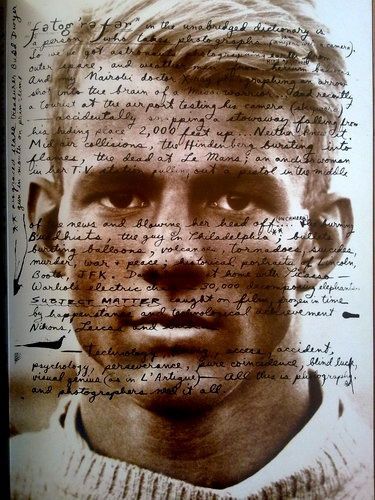 "fotografar" in the unabridged dictionary is
a person who takes photographs (anyone with a camera).
So we've got astronauts photographing
outer space and weather
And a Nairobi doctor X-ray photographing an arrow
shot into the brain of a warrior and recently
a tourist at the airport testing his camera
accidentally snapping a stowaway falling from
his hiding place 2,000 feet up... Neither
Mid air collisions, the Hindenberg bursting into
flames, the dead at Le Mans; an anchorwoman
in her T.V. station pulling out a pistol in the middle
of the news and blowing her head off... the burning
Buddhists, the guy in Philadelphia, bullets
bursting balloons, volcanoes, Tornadoes, suicides,
murder, war + peace; historical portraits of Lincoln,
Booth, J.F.K. at home with Picasso
Warhol's electric 30,000 decomposing elephants.
SUBJECT MATTER caught on film, frozen in time
by happenstance and technological achievement
Nikons, Leicas and
technology access, accident,
psychology, perseverance, pure coincidence, blind luck,
visual genius (as in L'Artigue) — All this is photography.
and photographers met it all.